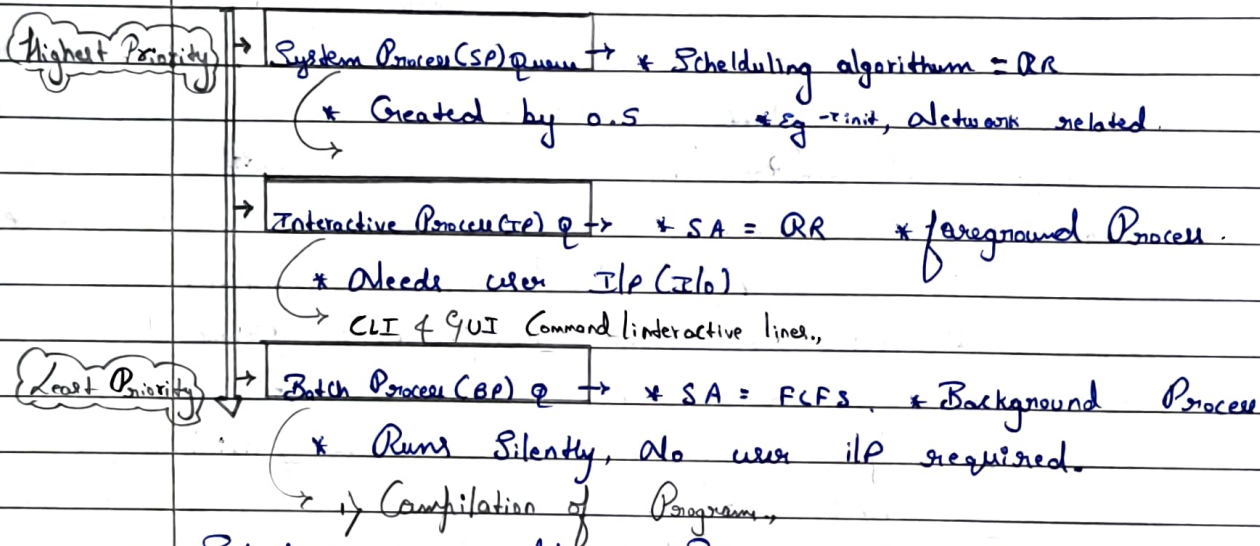 Highest Priority → System Process (SP) Queue → * Schelduling algorithum = RR
* Created by O.S * Eg → init, Network related.
→ Interactive Process (IP) Q → * SA = RR * foreground Process.
* Needs user I/P (I/O)
→ CLI & GUI Command | interactive lines.,
Least Priority → Batch Process (BP) Q → * SA = FCFS. * Background Process
* Runs Silently, No user i/P required.
→ 1) Compilation of Program.,